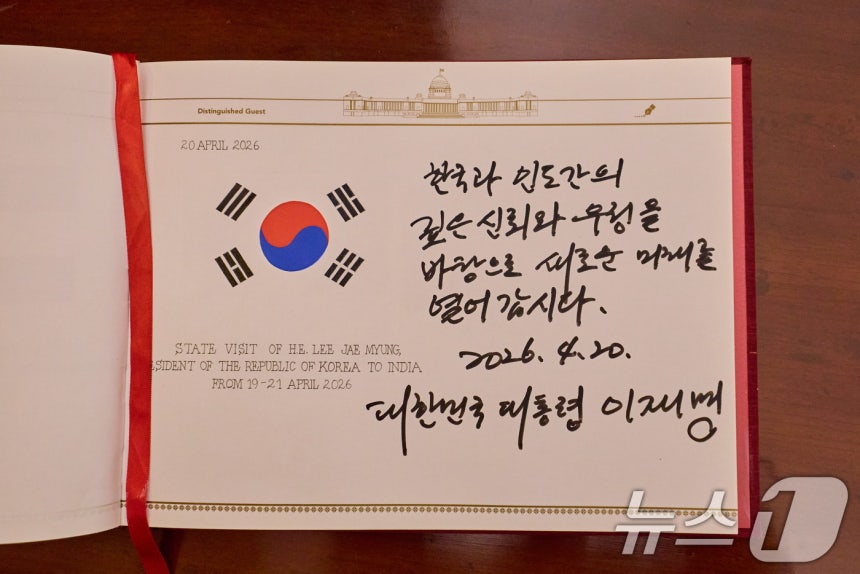 Distinguished Guest
20 APRIL 2026
한국과 인도간의
깊은 신뢰와 우정을
바탕으로 새로운 미래를
열어 갑시다.
2026. 4. 20.
대한민국 대통령 이재명
STATE VISIT OF H.E. LEE JAE MYUNG,
ESIDENT OF THE REPUBLIC OF KOREA TO INDIA
FROM 19-21 APRIL 2026
뉴스1